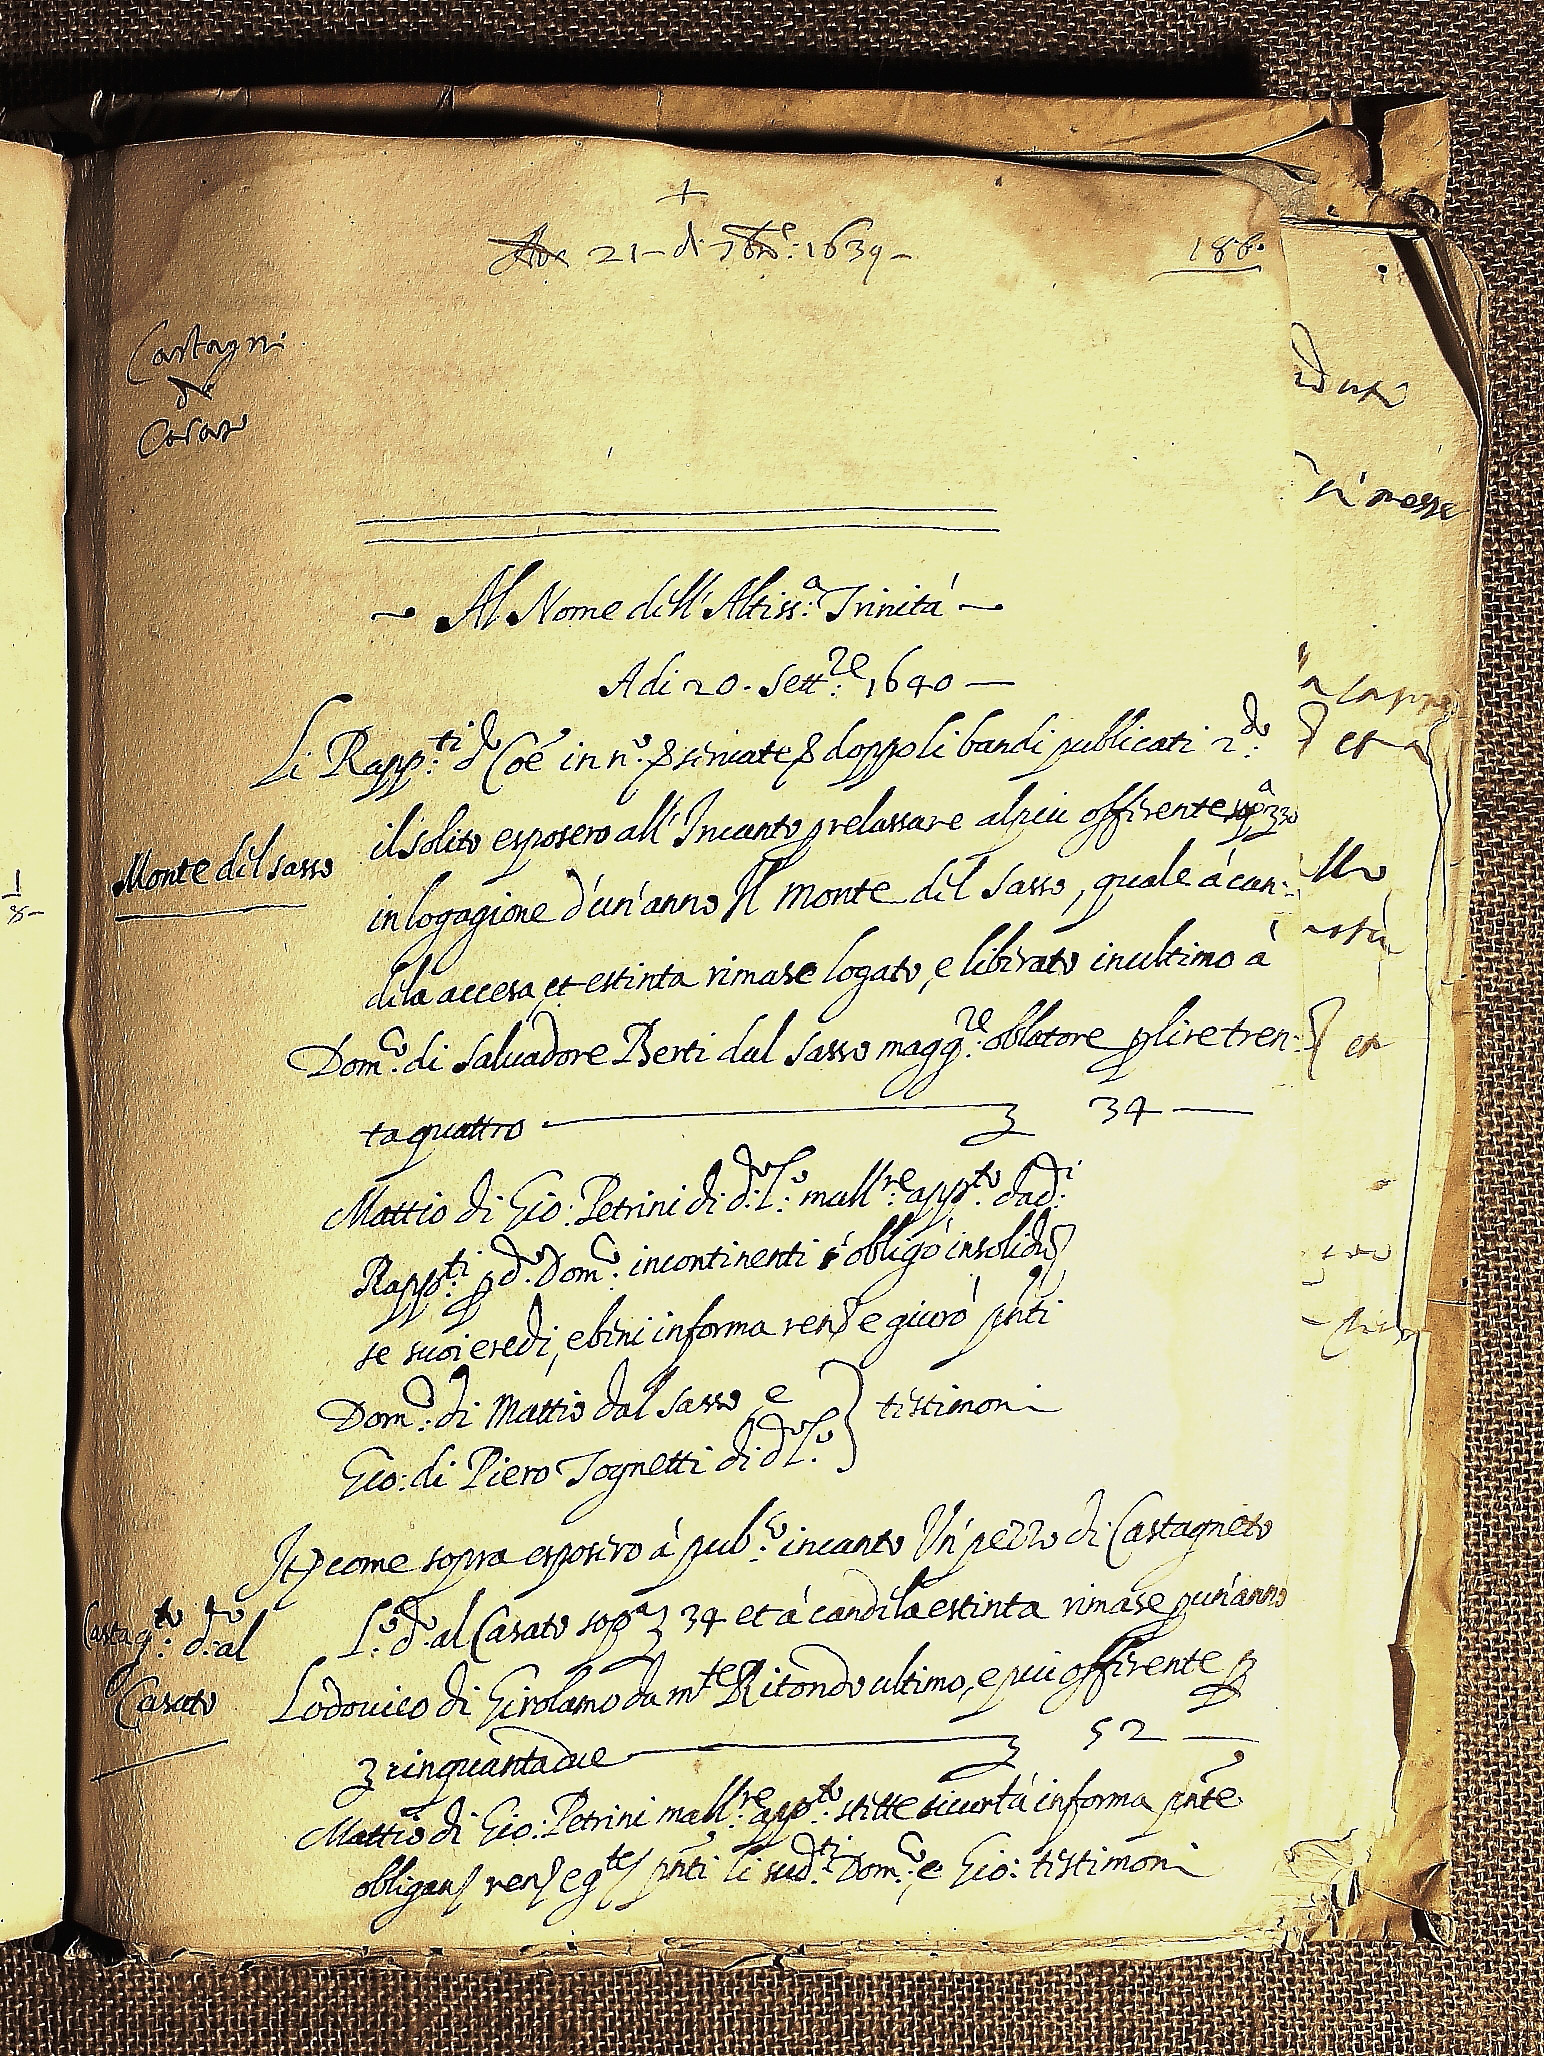 +
21 - di 7bre: 1639 -
186.
Castagni
di
Casato
Al Nome dell'Altiss:a Trinità
Adi 20. Sett:re 1640
Li Rapp:ti d Coe in n.o servate doppo li bandi publicati 2:do
il solito esposero all'Incanto p relassare al piu offerente
Monte del sasso
in logagione d'un'anno Il monte del sasso, quale á can:
dela accesa et estinta rimase logato, e liberato in ultimo á
Dom:co di Salvadore Berti dal sasso magg:re oblatore p lire tren:
taquattro 34
Mattio di Gio: Petrini di d:o L:o mall:re app:to da d:i
Rapp:ti p d:o Dom:co incontinenti s'obligó insolid
se suoi eredi, e beni in forma ren e giuró pnti
Dom:co di Mattio dal sasso e
Gio: di Piero Tognetti di d:o L:o testimoni
It come sopra esposero á pub:co incanto Un pezzo di Castagneto
Castag:to d:o al
L:o d:o al Casato sop:a 34 et á candela estinta rimase p un'anno
Casato
Lodovico di Girolamo da m:te Ritondo ultimo, e piu offerente p
cinquantadue 52
Mattio di Gio: Petrini mall:re app:to stette sicurtá in forma pnte
obligan ren e g:te pnti li sud:ti Dom:co, e Gio: testimoni